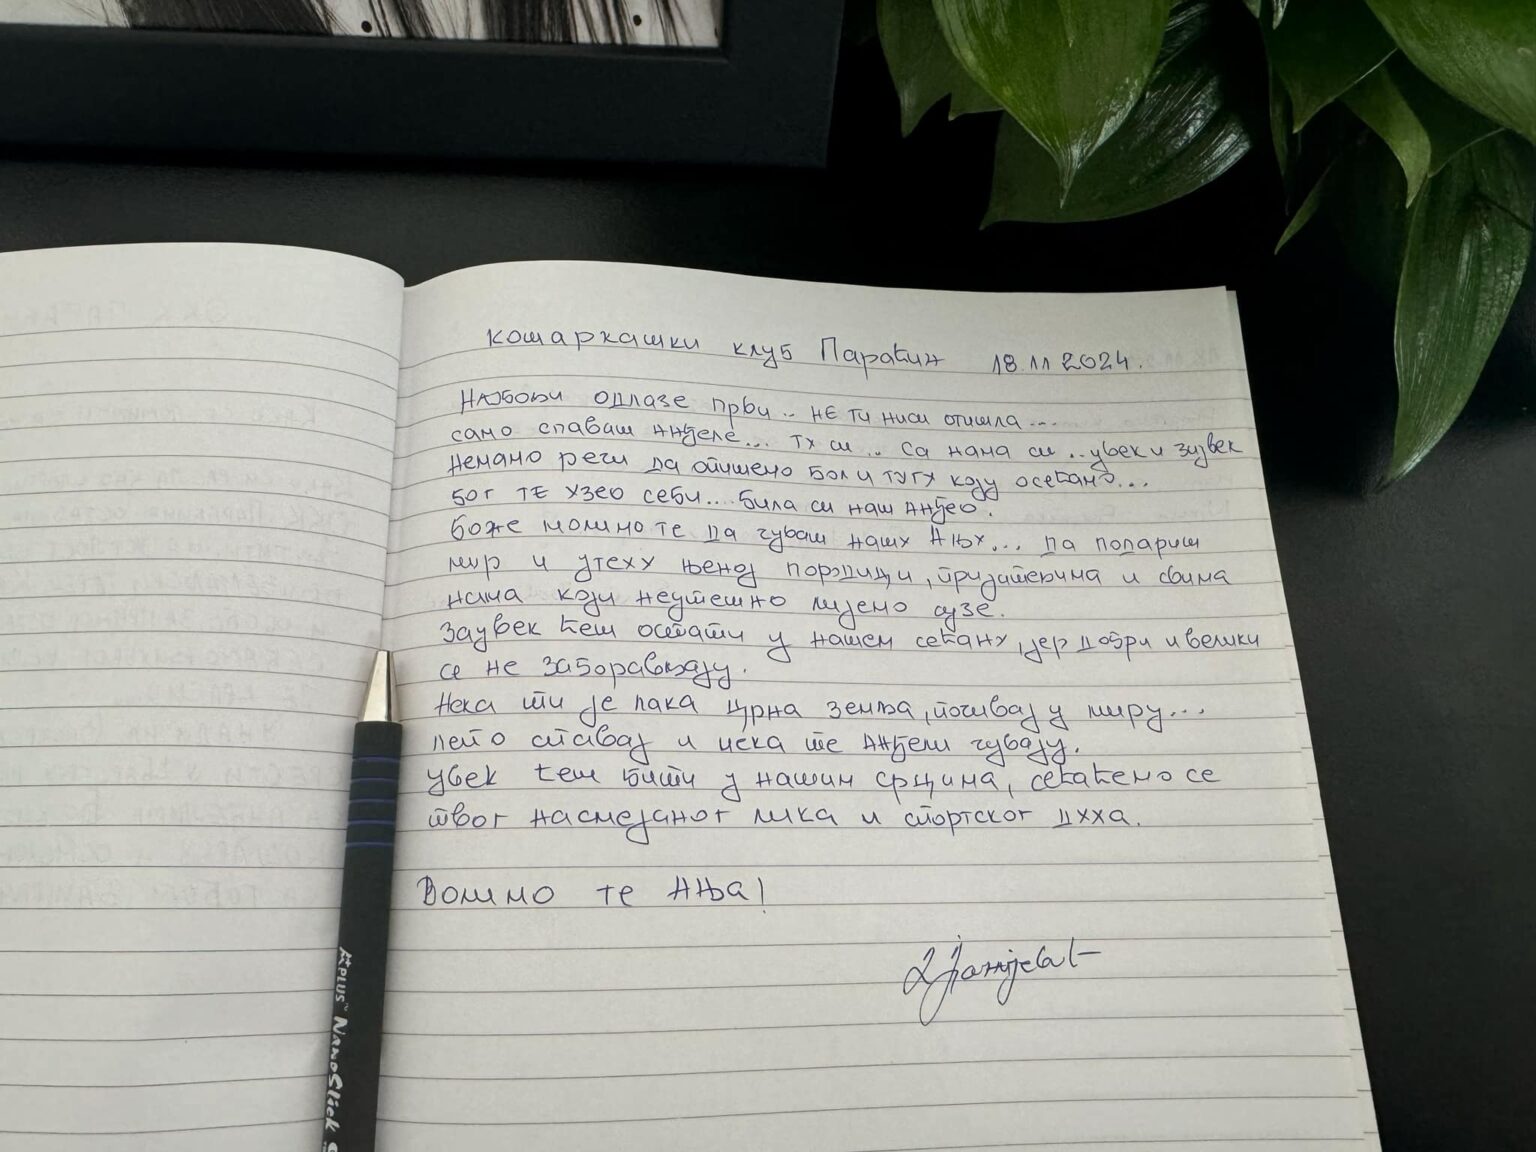 Кошаркашки клуб Параћин 18.11.2024.
Најбољи одлазе први.. не ти ниси отишла...
само спаваш анђеле... ту си.. са нама си.. увек и заувек
Немамо речи да опишемо бол и тугу коју осећамо...
Бог те узео себи.... била си наш анђео.
Боже молимо те да чуваш нашу Ању... да подариш
мир и утеху њеној породици, пријатељима и свима
нама који неутешно лијемо сузе.
Заувек ћеш остати у нашем сећању, јер добри и велики
се не заборављају.
Нека ти је лака црна земља, почивај у миру...
лепо спавај и нека те анђели чувају.
Увек ћеш бити у нашим срцима, сећаћемо се
твог насмејаног лика и спортског духа.
Волимо те Ања!
A+PLUS NANOSLICK